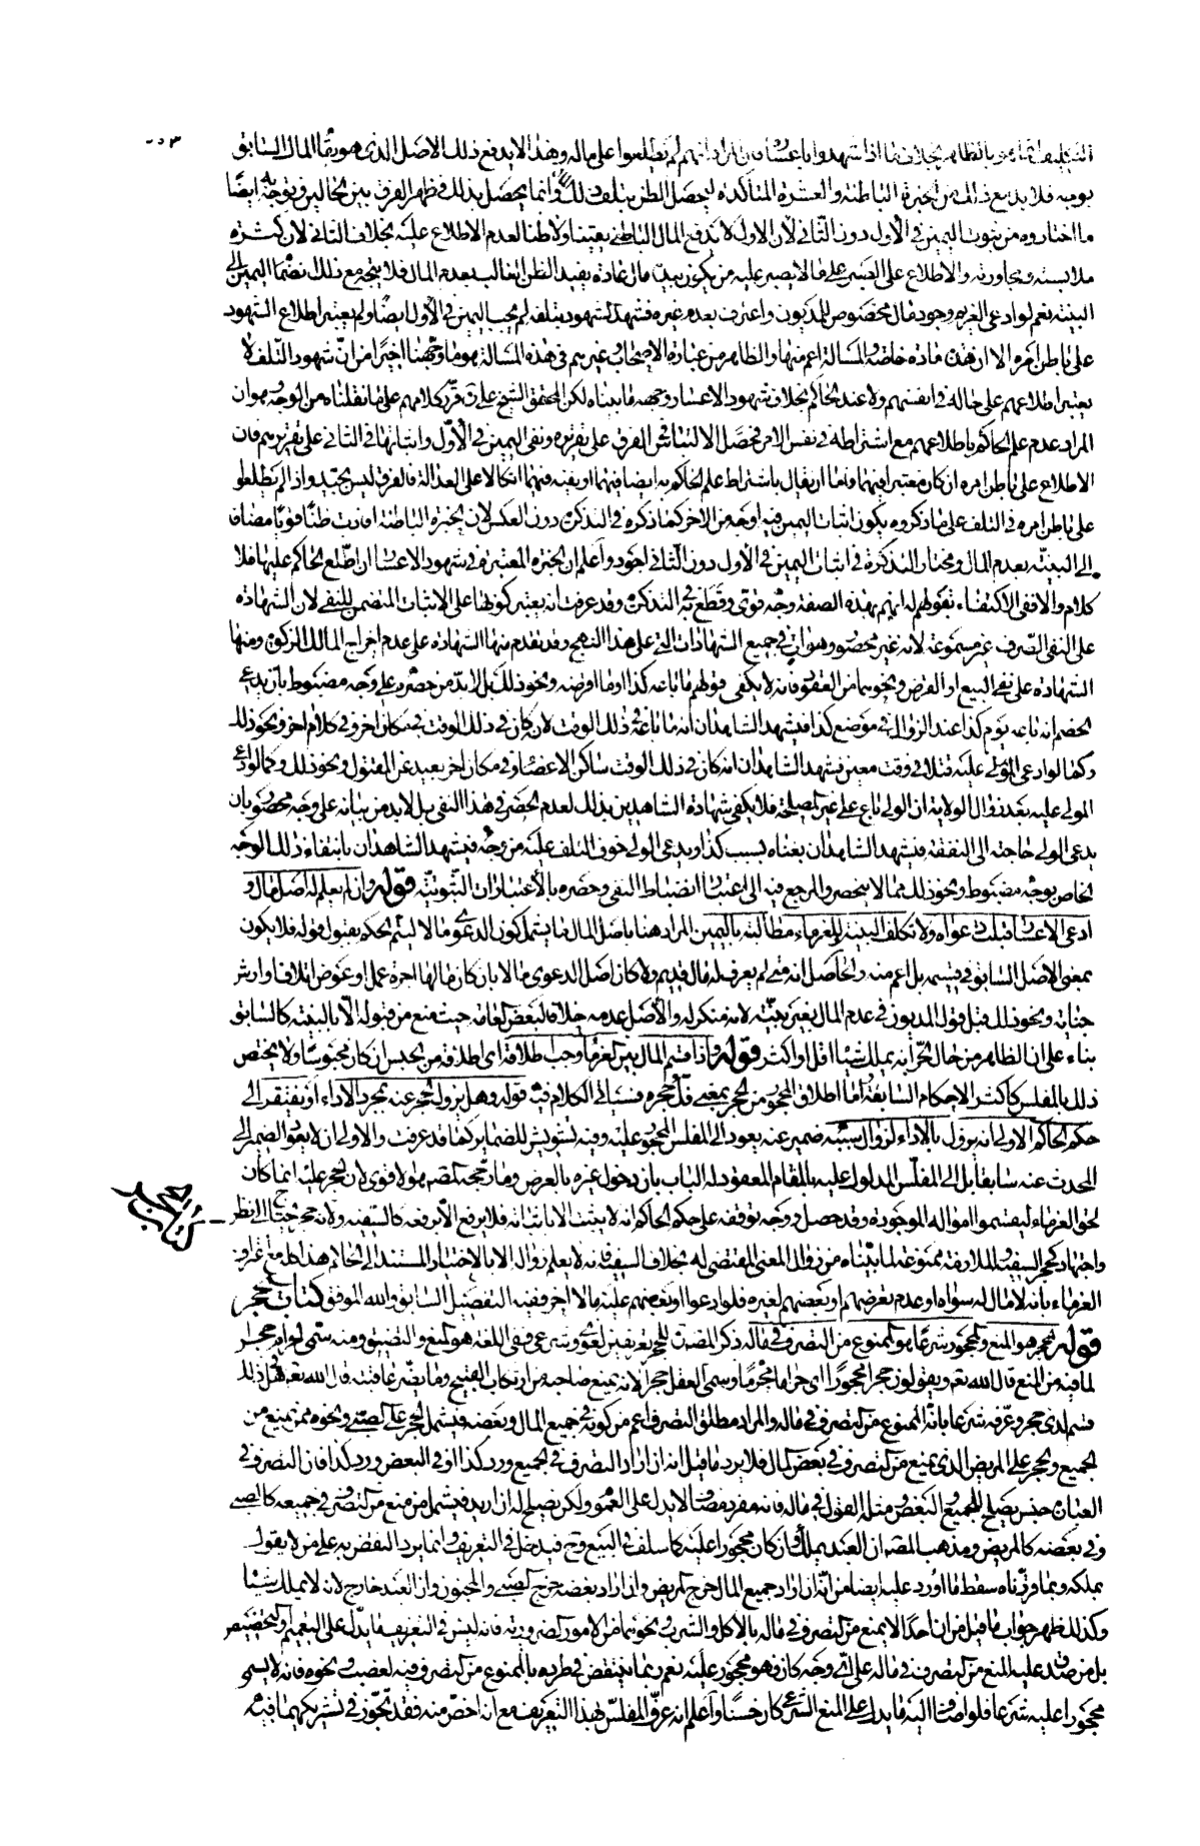 بخلاف ما اذا شهدوا باعساره فان المراد انهم لم يطلعوا على ماله وهذا لا يدفع ذلك الاصل الذى هو بقاء المال السابق
فلا بد مع ذلك من الخبرة الباطنة والعشرة المتأكدة ليحصل الظن بتلف ذلك وانما يحصل بذلك فظهر الفرق بين الحالين وتوجه ايضا
ما اختاروه من ثبوت اليمين فى الاول دون الثانى لان الاول لا يدفع المال الباطن يقينا ولا ظنا لعدم الاطلاع عليه بخلاف الثانى لان كثرة
ملابسته ومجاورته والاطلاع على الصبر على ما لا يصبر عليه من يكون بيده مال عادة يفيد الظن الغالب بعدم المال فلا يتجه مع ذلك ضم اليمين الى
البينة نعم لو ادعى الغريم وجود مال مخصوص للمديون واعترف بعدم غيره فشهد الشهود بتلفه لم يجب اليمين فى الاول ايضا ولم يعتبر اطلاع الشهود
على باطن امره الا ان هذه مادة خاصة والمسألة اعم منها والظاهر من عبارة الاصحاب وغيرهم فى هذه المسألة هو ما وجهنا اخيرا من ان شهود التلف لا
يعتبر اطلاعهم على حاله فى انفسهم ولا عند الحاكم بخلاف شهود الاعسار وجهه ما بيناه لكن المحقق الشيخ على ره قرر كلامهم على ما نقلناه من الوجه وهو ان
المراد عدم علم الحاكم باطلاعهم مع اشتراطه فى نفس الامر فحصل الالتباس فى الفرق على تقريره ونفى اليمين فى الاول واثباتها فى الثانى على تقريرهم فان
الاطلاع على باطن امره ان كان معتبرا فيهما فاما ان يقال باشتراط علم الحاكم به ايضا فيهما او بنفيه فيهما اتكالا على العدالة فالفرق ليس بجيد واذا لم يطلعوا
على باطن امره فى التلف على ما ذكروه يكون اثبات اليمين فيه اوجه من الاخر كما ذكره فى التذكرة دون العكس لان الخبرة الباطنة افادت ظنا قويا مضافا
الى البينة بعدم المال ومختار التذكرة فى اثبات اليمين فى الاول دون الثانى اجود واعلم ان الخبرة المعتبرة فى شهود الاعسار ان اطلع الحاكم عليها فلا
كلام والا ففى الاكتفاء بقولهم له انهم بهذه الصفة وجه قوى وقطع به فى التذكرة وقد عرفت انه يعتبر كونها على الاثبات المتضمن للنفى لان الشهادة
على النفى الصرف غير مسموعة لانه غير محصور وهو آت فى جميع الشهادات التى على هذا النهج وقد تقدم منها الشهادة على عدم اخراج المالك الزكوة ومنها
الشهادة على نفى البيع او القرض ونحوهما من العقود فانه لا يكفى قولهم ما باعه كذا او ما اقرضه ونحو ذلك بل لا بد من حصره على وجه مضبوط بان يدعى
الخصم انه باعه يوم كذا عند الزوال فى موضع كذا فيشهد الشاهدان انه ما باعه فى ذلك الوقت لانه كان فى ذلك الوقت فى مكان اخر وفى كلام اخر ونحو ذلك
وكما لو ادعى المولى عليه قتلا فى وقت معين فشهد الشاهدان انه كان فى ذلك الوقت ساكن الاعضاء او فى مكان اخر بعيد عن المقتول ونحو ذلك وكما لو ادعى
المولى عليه بعد زوال الولاية ان الولى باع على غير المصلحة فلا يكفى شهادة الشاهدين بذلك لعدم الحصر فى هذا النفى بل لا بد من بيانه على وجه محصور بان
يدعى الولى حاجته الى النفقة فيشهد الشاهدان بغناه بسبب كذا او يدعى الولى خوف التلف عليه من وجه فيشهد الشاهدان بانتفاء ذلك الوجه
الخاص بوجه مضبوط ونحو ذلك مما لا ينحصر والمرجع فيه الى اعتبار انضباط النفى وحصره بالاعتبارات الثبوتية قوله وان لم يعلم له اصل مال و
ادعى الاعسار قبلت دعواه ولا تكلف البينة وللغرماء مطالبته باليمين المراد هنا باصل المال ما يشمل كون الدعوى مالا ليتم الحكم بقبول قوله فلا يكون
بمعنى الاصل السابق فى قسيمه بل اعم منه والحاصل انه متى لم يعرف له مال قديم ولا كان اصل الدعوى مالا بان كان مالها اجرة عمل او عوض اتلاف او ارش
جناية ونحو ذلك قبل قول المديون فى عدم المال بغير بينة لانه منكر له والاصل عدمه خلافا لبعض العامة حيث منع من قبوله الا بالبينة كالسابق
بناء على ان الظاهر من حال الحر انه يملك شيئا اقل او اكثر قوله واذا قسم المال بين الغرماء وجب اطلاقه اى اطلاقه من الحبس ان كان محبوسا ولا يختص
ذلك بالمفلس كاكثر الاحكام السابقة اما اطلاق المحجور من الحجر بمعنى فك حجره فسيأتى الكلام فيه قوله وهل يزول الحجر عنه بمجرد الاداء او يفتقر الى
حكم الحاكم الاولى انه يزول بالاداء لزوال سببه ضمير عنه يعود الى المفلس المحجور عليه وفيه تشويش للضماير كما قد عرفت والاولى ان لا يعود الضمير الى
المحدث عنه سابقا بل الى المفلس المدلول عليه بالمقام المعقود له الباب بان دخول غيره بالعرض وما رجحه المصنف هو الاقوى لان الحجر عليه انما كان
لحق الغرماء ليقسموا امواله الموجودة وقد حصل ووجه توقفه على حكم الحاكم انه لا يثبت الا باثباته فلا يرفع الا برفعه كالسفيه ولانه حجر يحتاج الى نظر
واجتهاد كحجر السفيه والملازمة ممنوعة لما بيناه من زوال المعنى المقتضى له بخلاف السفيه فانه لا يعلم زواله الا بالاختبار المستند الى الحاكم هذا كله مع اعتراف
الغرماء بانه لا مال له سواه او عدم تعرضهم او بعضهم لغيره فلو ادعوا او بعضهم عليه مالا اخر ففيه التفصيل السابق والله الموفق كتاب الحجر
قوله الحجر هو المنع والمحجور شرعا هو الممنوع من التصرف فى ماله ذكر المصنف للحجر تعريفين لغوى وشرعى ففى اللغة هو المنع والتضييق ومنه سمى الحرام حجرا
لما فيه من المنع قال الله تعه ويقولون حجرا محجورا اى حراما محرما وسمى العقل حجرا لانه يمنع صاحبه من ارتكاب القبيح وما يضر عاقبته قال الله تعه هل فى ذلك
قسم لذى حجر وعرفه شرعا بانه الممنوع من التصرف فى ماله والمراد مطلق التصرف اعم من كونه فى جميع المال وبعضه فيشمل الحجر على الصبى ونحوه ممن يمنع من
الجميع والحجر على المريض الذى يمنع من التصرف فى بعض المال فلا يرد ما قيل انه ان اراد التصرف فى الجميع ورد كذا او فى البعض ورد كذا فان التصرف فى
العبارة جنس يصلح للجميع والبعض ومثله القول فى ماله فانه مفرد مضاف لا يدل على العموم ولكن يصلح له ان اريد فيشمل من منع من التصرف فى جميعه كالصبى
وفى بعضه كالمريض ومذهب المصنف ان العبد يملك وان كان محجورا عليه كما سلف فى البيع وح فيدخل فى التعريف وانما يرد النقض به على من لا يقول
بملكه وبما قررناه سقط ما اورد عليه ايضا من انه ان اراد جميع المال خرج المريض وان اراد بعضه خرج الصبى والمجنون وان العبد خارج لانه لا يملك شيئا
وكذلك ظهر جواب ما قيل من ان احدا لا يمنع من التصرف فى ماله بالاكل والشرب ونحوهما من الامور الضرورية فانه ليس فى التعريف ما يدل على التعميم والتخصيص
بل من صدق عليه المنع من التصرف فى ماله على اى وجه كان فهو محجور عليه نعم ربما ينتقض فى طرده بالممنوع من التصرف فيه لغصب ونحوه فانه لا يسمى
محجورا عليه شرعا فلو اضاف اليه ما يدل على المنع الشرعى كان حسنا واعلم انه عرف المفلس بهذا التعريف مع انه اخص منه فقد تجوز فى تشريكهما فيه
كتاب الحجر